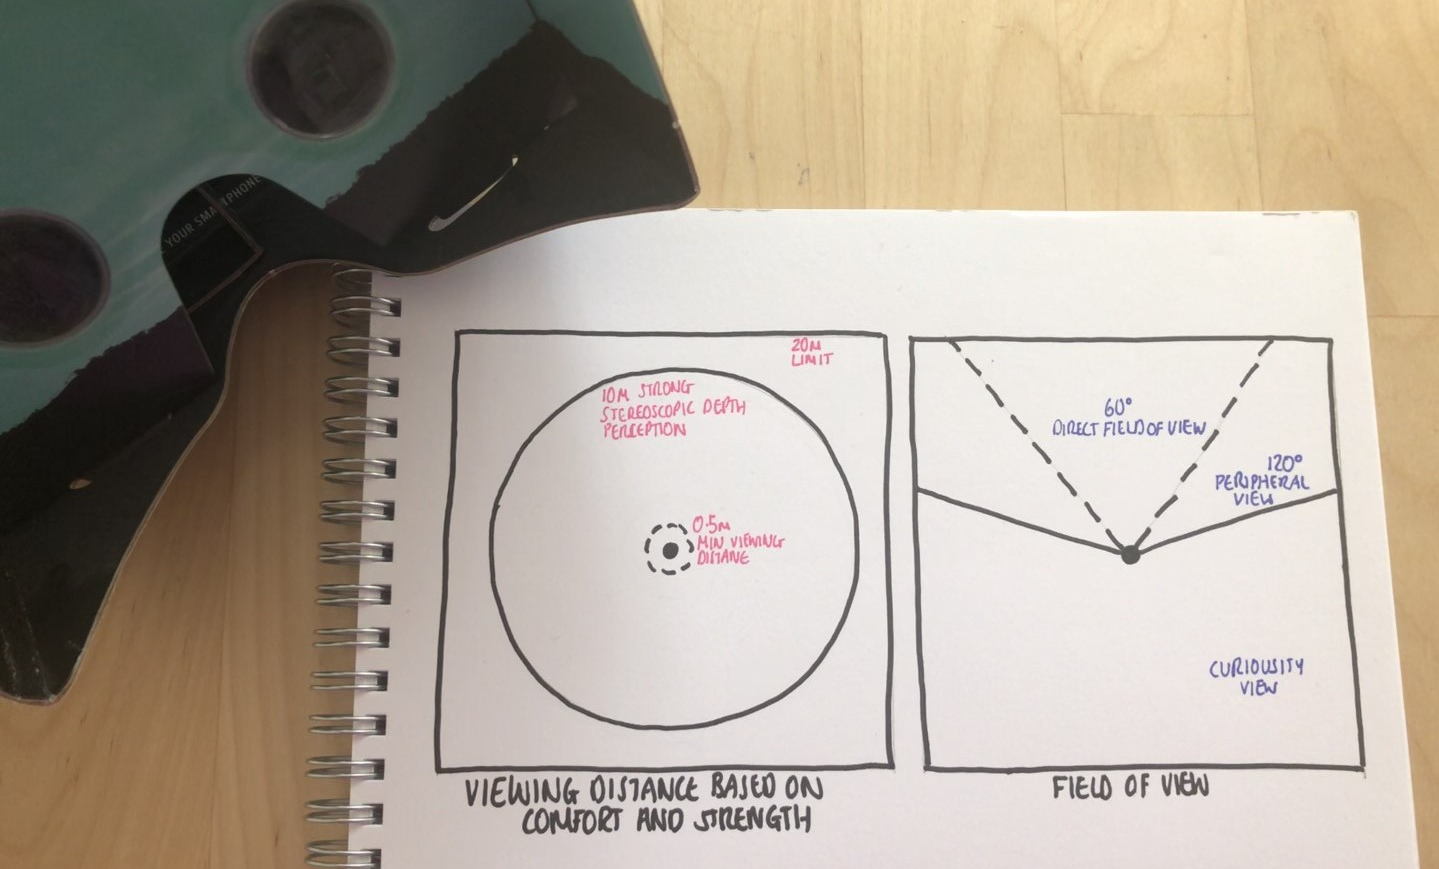 YOUR SMARTPHONE
20M
LIMIT
10M STRONG
STEREOSCOPIC DEPTH
PERCEPTION
0.5M
MIN VIEWING
DISTANE
VIEWING DISTANCE BASED ON
COMFORT AND STRENGTH
60°
DIRECT FIELD OF VIEW
120°
PERIPHERAL
VIEW
CURIOUSITY
VIEW
FIELD OF VIEW